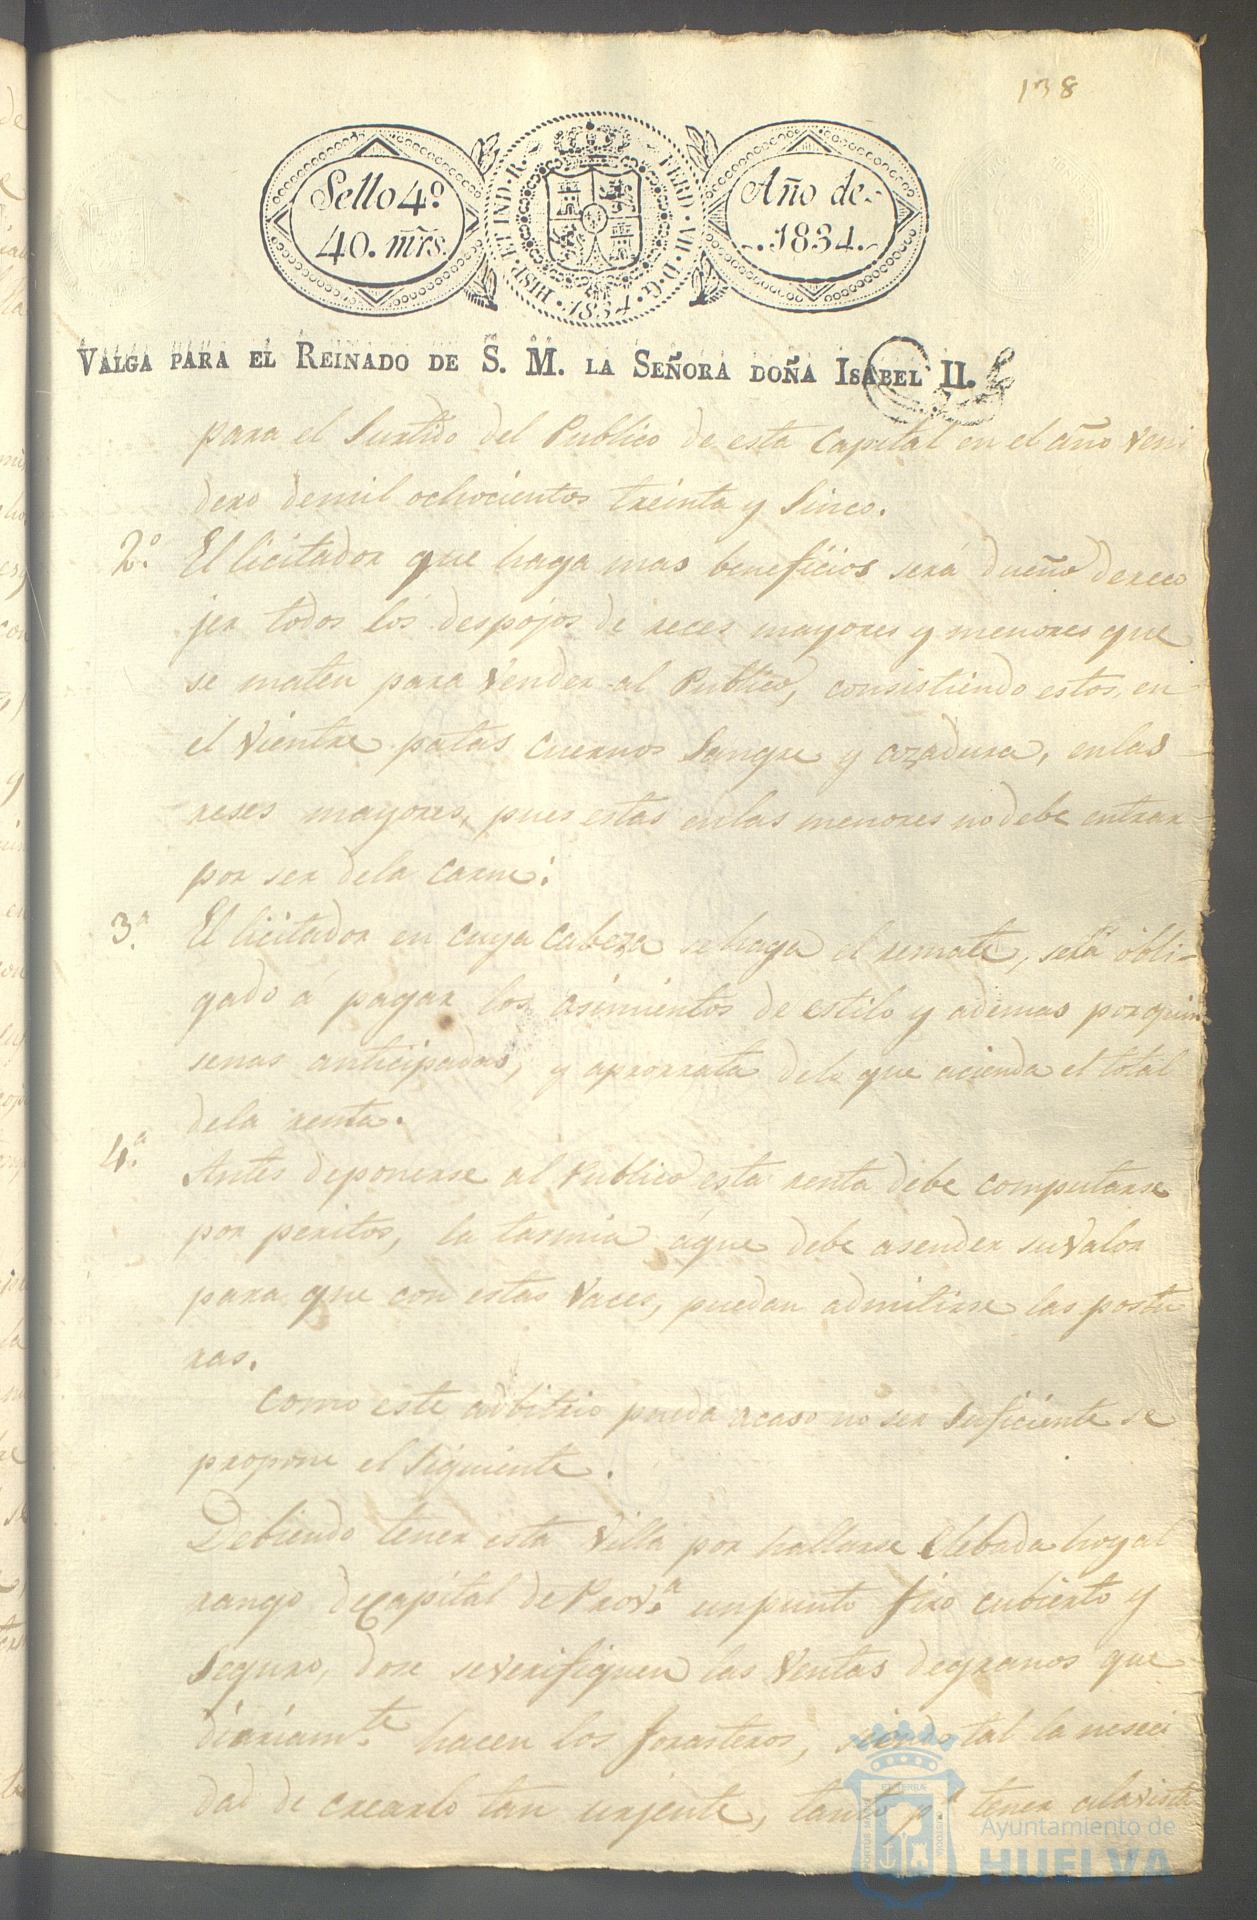 138
Sello 4º
40. mrs.
HISP. ET IND. R. FERD. VII. D. G. 1834
Año de
1834.
VALGA PARA EL REINADO DE S. M. LA SEÑORA DOÑA ISABEL II.
para el Surtido del Publico de esta Capital en el año Veni
dero demil ochocientos treinta y Sinco.
2.º El licitador que haga mas beneficios será dueño dereco
jer todos los despojos de reces mayores y menores que
se maten para Vender al Publico, consistiendo estos, en
el Vientre patas cuernos Sangre y azadura, enlas
reses mayores, pues estas enlas menores no debe entrar
por ser dela carne.
3.ª El licitador en cuya cabeza se haga el remate, será obli-
gado á pagar los asimientos de estilo y ademas por quin
senas anticipadas, y aprorrata delo que acienda el total
dela renta.
4.ª Antes deponerse al Publico esta renta debe computarse
por peritos, la tasmia áque debe asender su Valor
para que con estas Vaces, puedan admitirse las postu
ras.
Como este adbitrio pueda acaso no ser Suficiente se
propone el Siguiente.
Debiendo tener esta Villa por hallarse Elebada hoy al
rango de Capital de Prov.ª un punto fixo cubierto y
Seguro, don se verifiquen las Ventas de granos que
diariam.te hacen los forasteros, siendo tal la neseci
dad de crearlo tan urjente, tanto p.ª tener ala vista
Ayuntamiento de
HUELVA